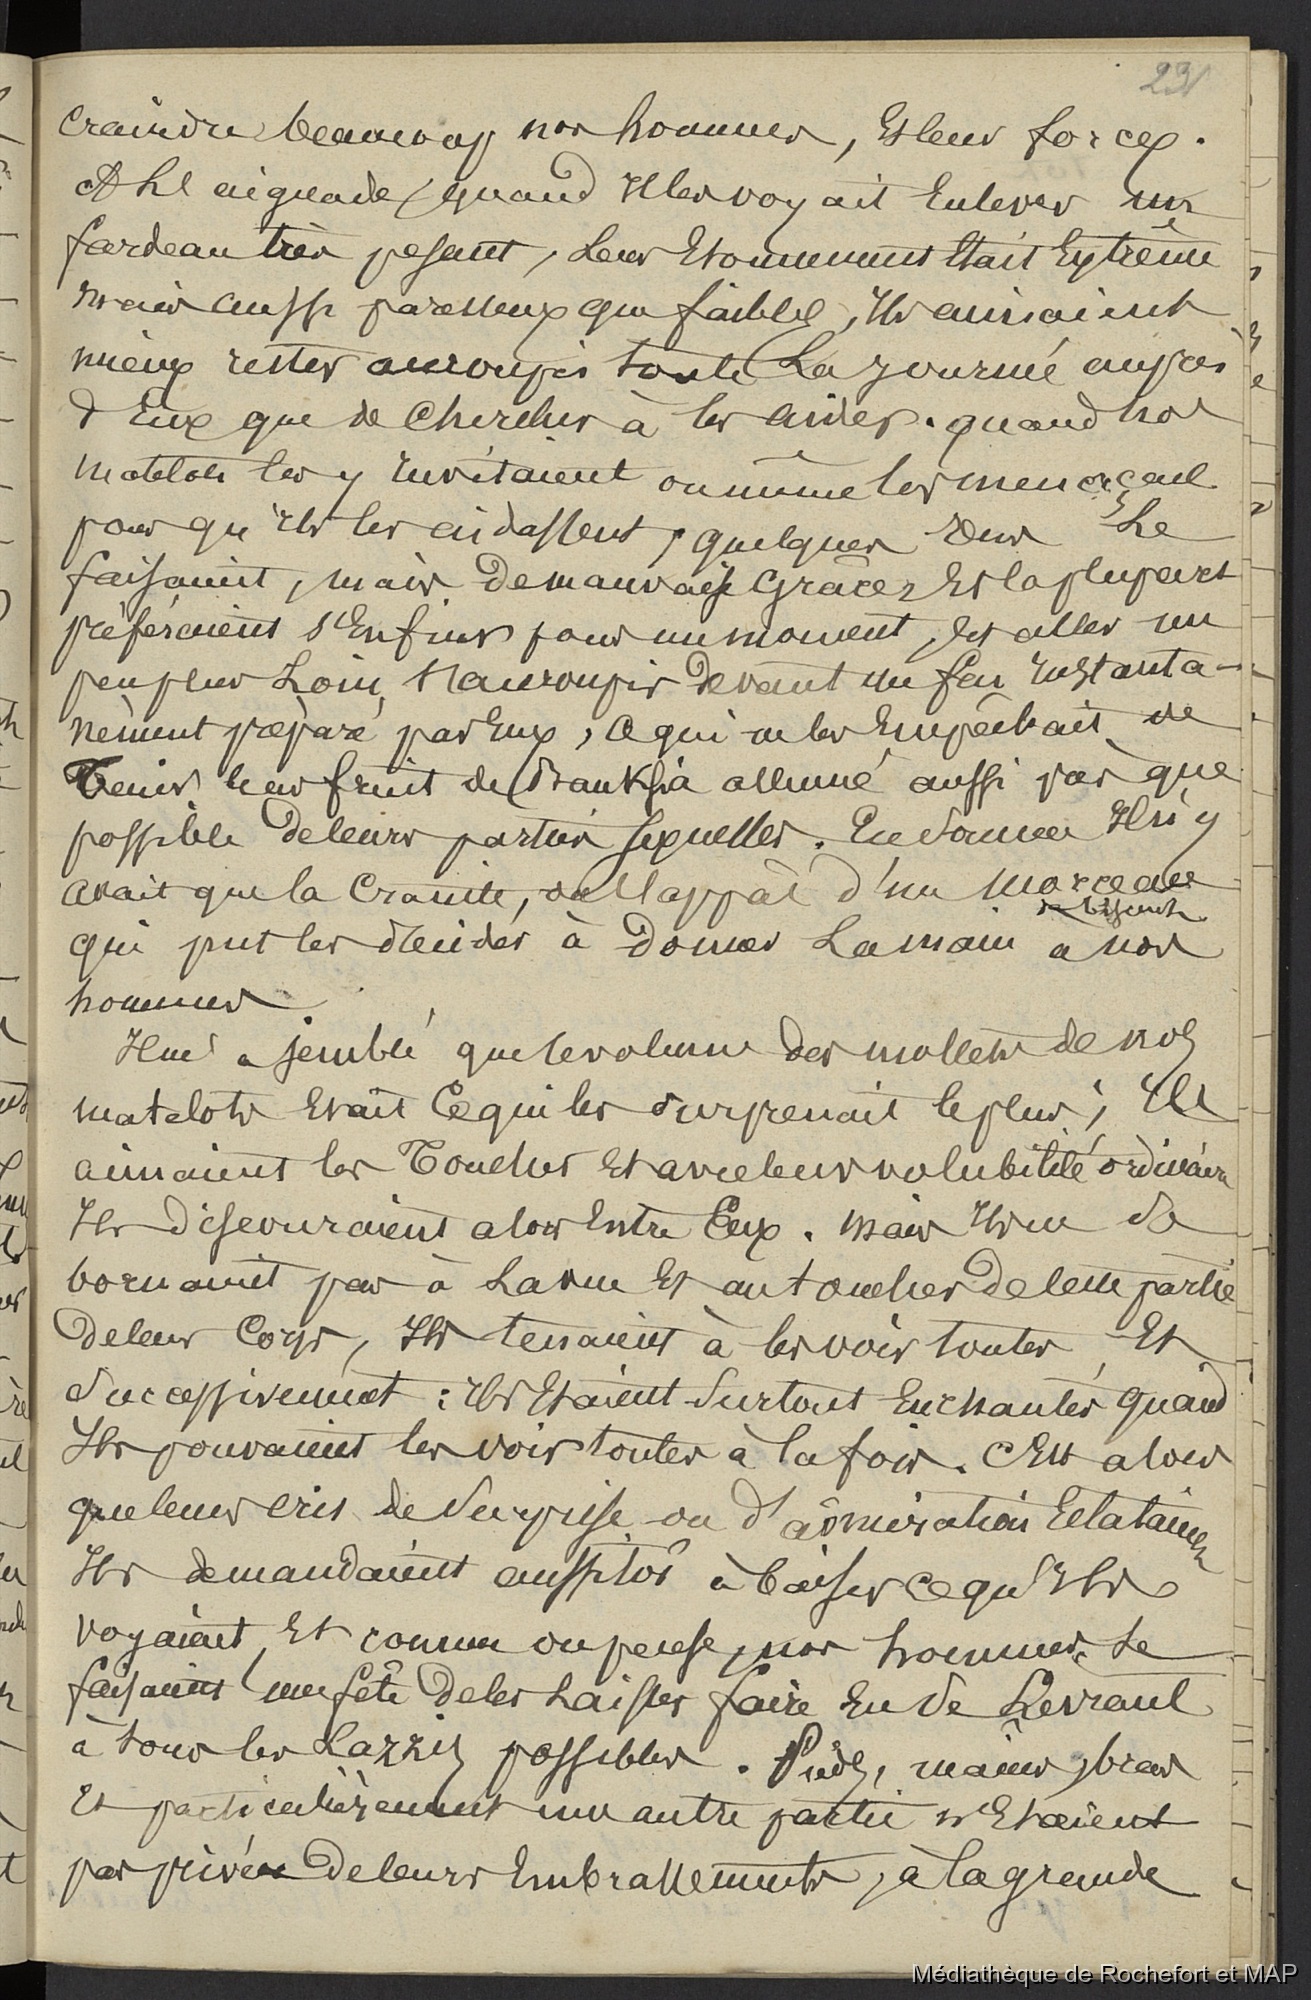 231
craindre beaucoup nos hommes, Et leur force.
A hl aiguade, quand Ils les voyait Enlever un
fardeau très pesant, leur Etonnement Etait Extrême
mais aussi paresseux que faibles, Ils aimaient
mieux rester accroupis toute La journée auprès
d'Eux que de chercher à les aider. quand nos
matelots les y Invitaient ou même les menaçaient
pour qu'ils les aidassent, quelques uns Le
faisaient, mais de mauvaise grâce, Et la plupart
préféraient s'Enfuir pour un moment, Et aller un
peu plus Loin, s'accroupir devant un feu Instanta-
nément préparé par Eux, ce qui ne les Empêchait de
Tenir leur fruit de Banksia allumé aussi près que
possible de leurs parties sexuelles. En somme Il n'y
avait que la crainte, ou l'appât d'un morceau
de biscuit
qui put les décider à donner La main à nos
hommes.
Il m'a semblé que le volume des mollets de nos
matelots Etait Ce qui les surprenait le plus; Ils
aimaient les Toucher Et avec leur volubilité ordinaire
Ils discouraient alors Entre Eux. mais Ils ne se
bornaient pas à La vue Et au toucher de cette partie
de leur Corps, Ils tenaient à les voir toutes Et
Successivement: Ils Etaient Surtout Enchantés quand
Ils pouvaient les voir toutes à la fois. C'Est alors
que leurs cris de Surprise ou d'admiration Eclataient
Ils demandaient aussitôt à baiser ce qu'Ils
voyaient, Et comme on pense, nos hommes se
faisaient une fête de les Laisser faire En se Livrant
à tous les Lazzis possibles. Pieds, mains, bras
Et particulièrement une autre partie n'Etaient
pas privés de leurs Embrassements, à la grande
Médiathèque de Rochefort et MAP